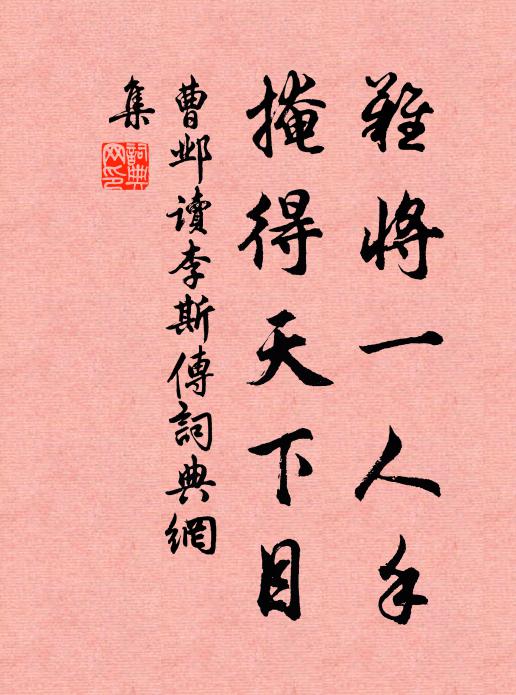 難將一人手
掩得天下目
曹邺讀李斯傳詞典網
集
詞典
网印